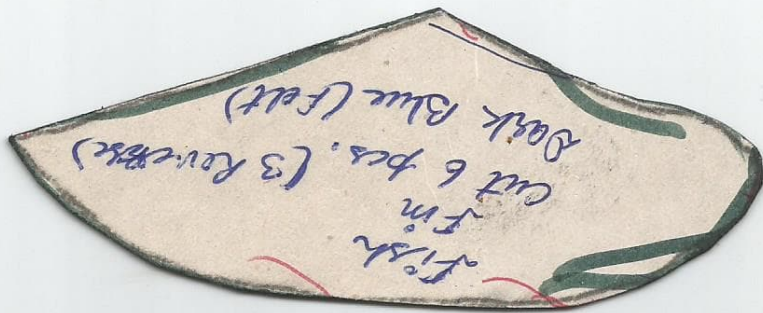 Fish
Fin
cut 6 pcs. (3 Reverse)
Dark Blue (Felt)